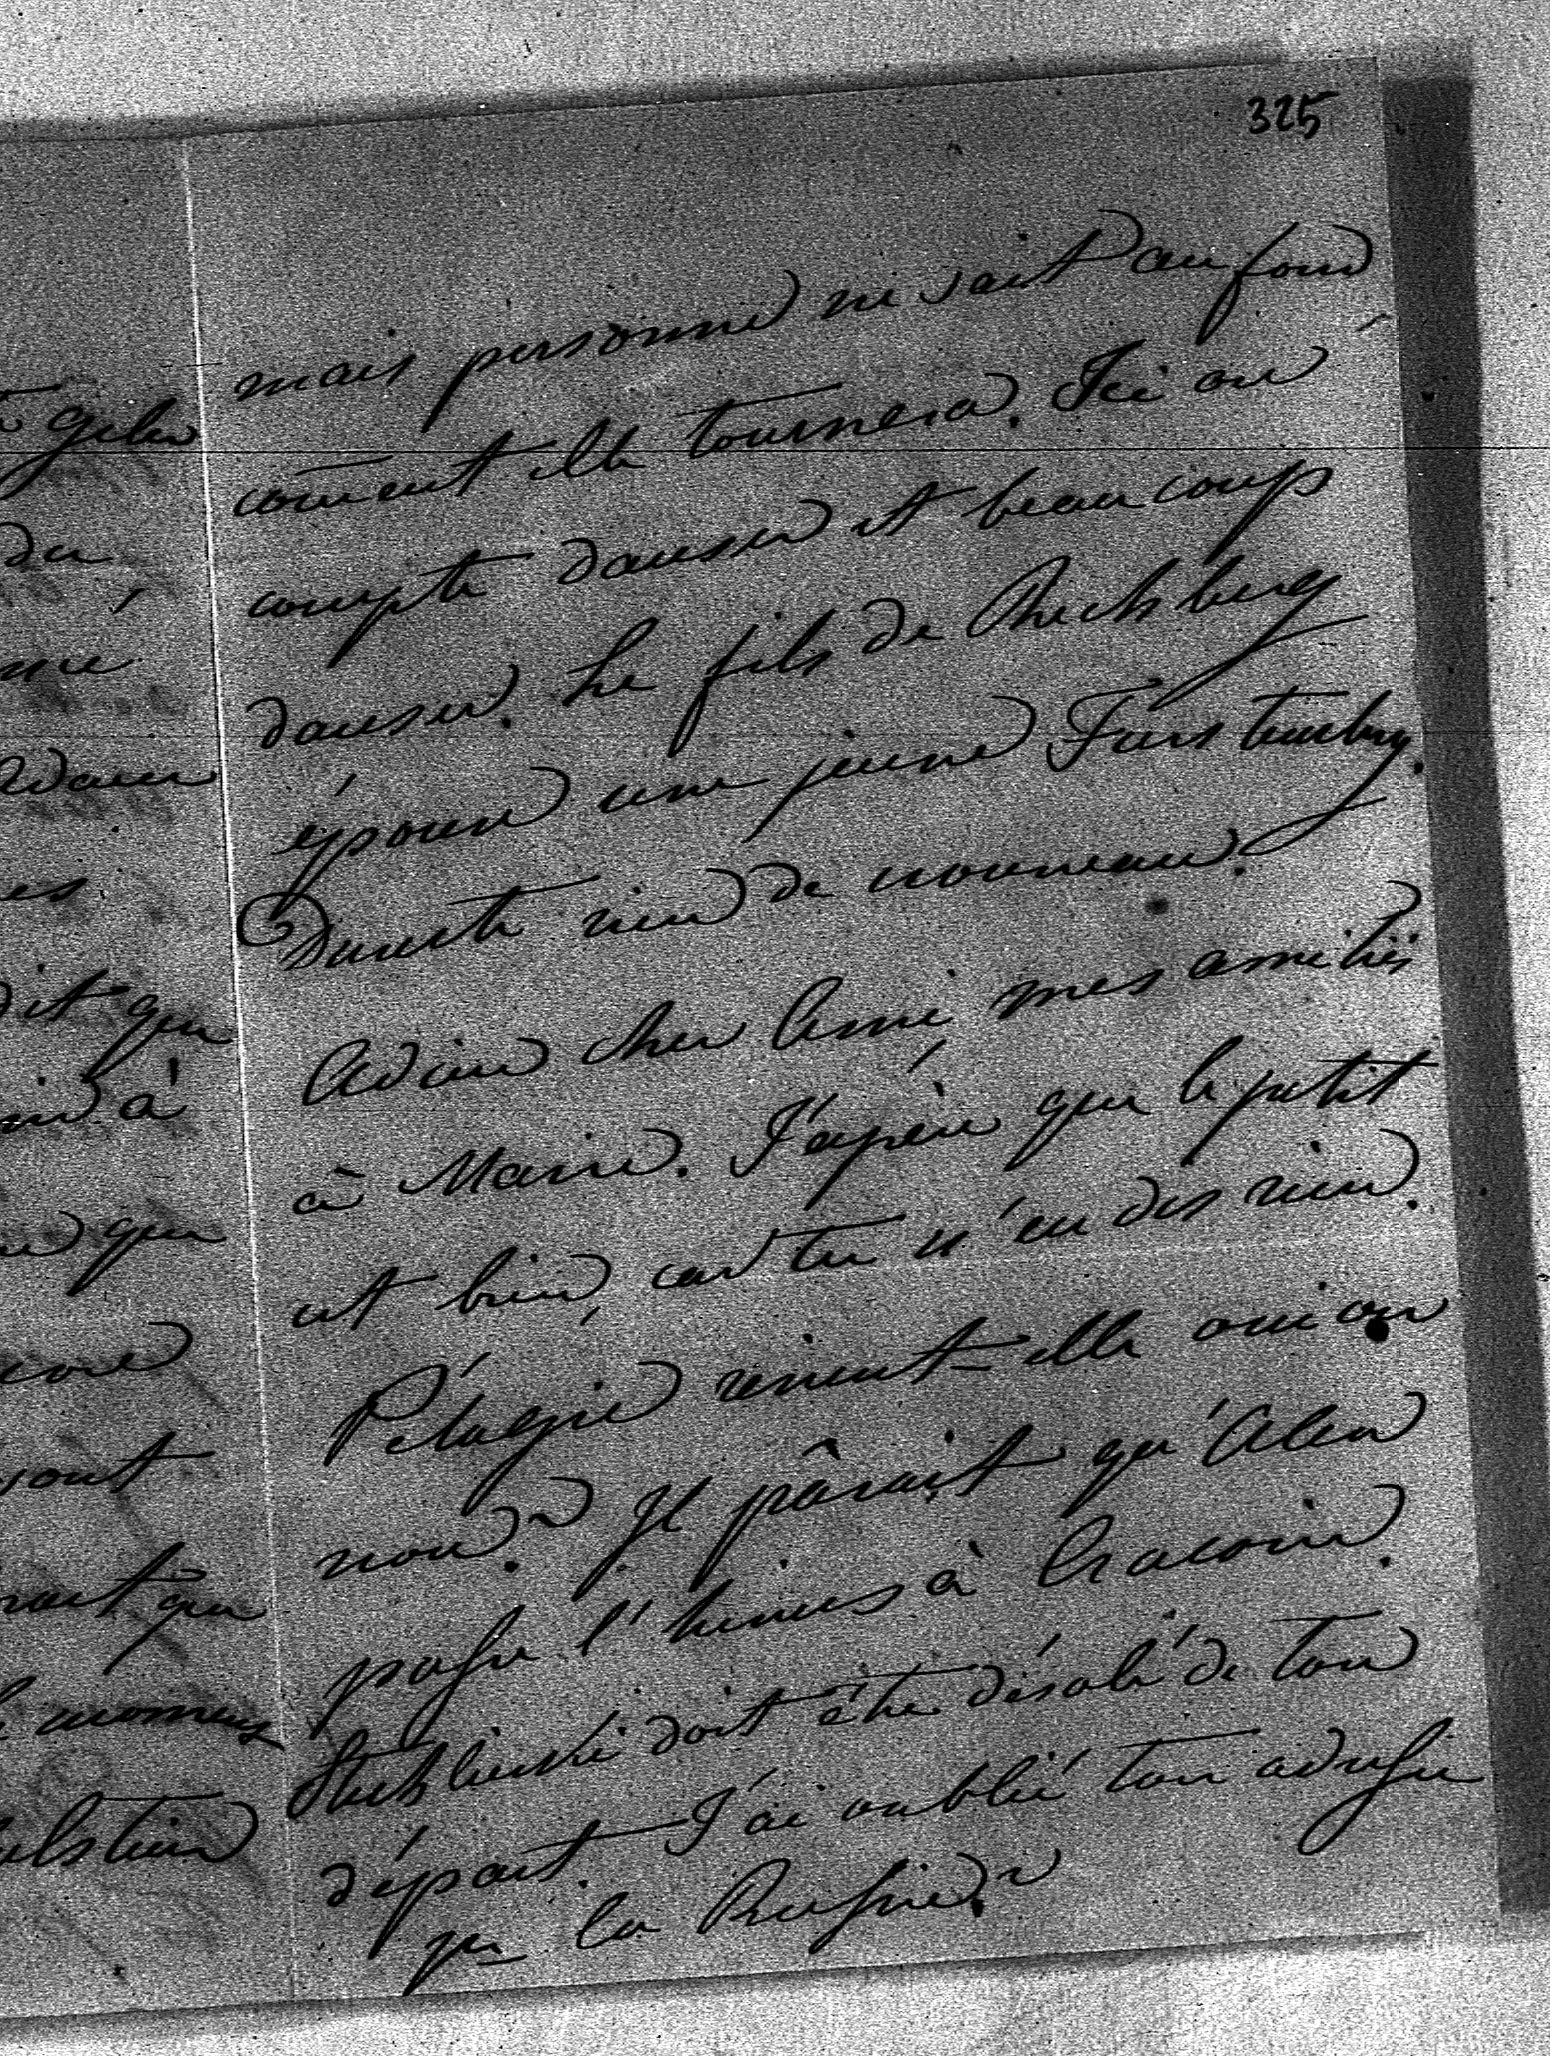 325
mais personne ne sait au fond
coment elle tournera. Ici on
compte danser et beaucoup
danser. Le fils de Rechberg
épouse une jeune Furstenberg.
Dureste rien de nouveau.
Adieu cher Ami, mes amitiés
à Marie. J'éspère que le petit
est bien, car tu n'en dis rien.
Pélagie revient-elle oui ou
non? Il pârait qu'Alen
passe l'hiver à Cracovie.
doit être désolé de ton
départ. J'ai oublié ton adresse
pr la Russie.
gelen
du
mé
es
dit que
à
que
core
sont
que
momens